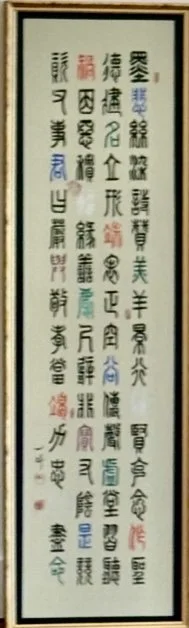 墨悲絲染詩讚羔羊景行賢克念作聖
德建名立形端表正空谷傳聲虛堂習聽
禍因惡積緣善慶尺璧非寶寸陰是競
資父事君曰嚴與敬孝當竭力忠盡命